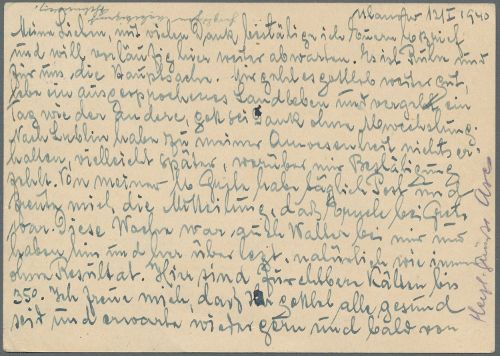 12/I 1940
Meine Lieben, mit vielem Dank bestätige ich Euern
und will vorläufig hier weiter abwarten. Es ist Ruhe und
für uns die Hauptsache. Mir geht es gottlob weiter gut,
habe ein ausgesprochenes Landleben und vergeht ein
Tag wie der andere, gott sei Dank ohne Abwechslung.
Nach Lublin habe zu meiner Anwesenheit nichts er-
halten, vielleicht später, worüber mir Bestätigung
fehlt. Von meiner lb habe täglich Post und
freute mich die Mitteilung, daß bei
war. Diese Woche war auch Walter bei mir und
haben hin und her überlegt, natürlich wie immer
ohne Resultat. Hier sind furchtbare Kälten bis
35°. Ich freue mich, daß Ihr gottlob alle gesund
seit und erwarte wieder gern und bald von